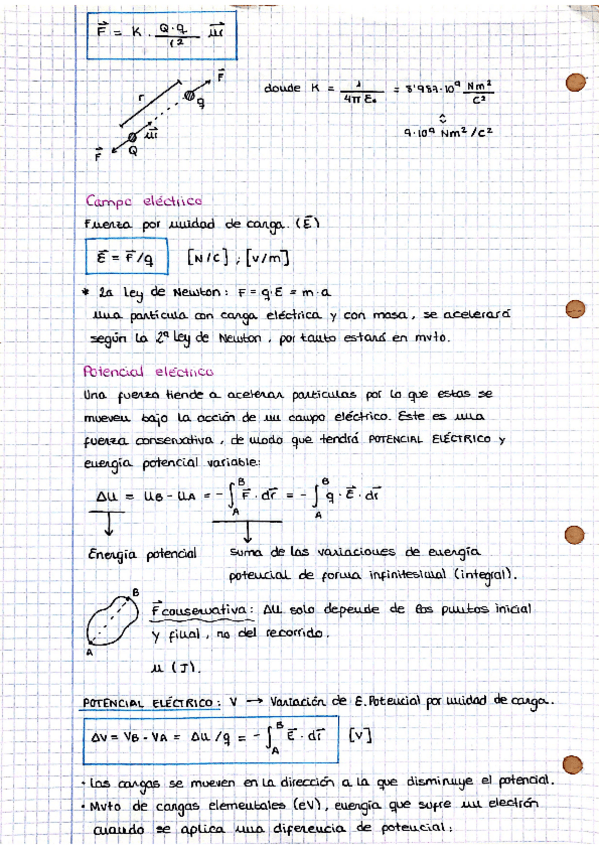 F⃗ = K · Q·q / r² u⃗r
F⃗
r
q
u⃗r
F⃗
Q
donde K = 1 / 4π ε₀ = 8'989·10⁹ Nm² / C²
9·10⁹ Nm²/C²
Campo eléctrico
Fuerza por unidad de carga. (E⃗)
E⃗ = F⃗/q [N/C] ; [V/m]
* 2a Ley de Newton: F = q·E = m·a
Una partícula con carga eléctrica y con masa, se acelerará
según la 2ª Ley de Newton, por tanto estará en mvto.
Potencial eléctrico
Una fuerza tiende a acelerar partículas por lo que estas se
mueven bajo la acción de un campo eléctrico. Este es una
fuerza conservativa, de modo que tendrá POTENCIAL ELÉCTRICO y
energía potencial variable:
ΔU = UB - UA = - ∫_A^B F⃗ · dr⃗ = - ∫_A^B q · E⃗ · dr⃗
Energía potencial
Suma de las variaciones de energía
potencial de forma infinitesimal (integral).
A B
F⃗ conservativa: ΔU solo depende de los puntos inicial
y final, no del recorrido.
u (J).
POTENCIAL ELÉCTRICO: V → Variación de E.Potencial por unidad de carga.
ΔV = VB - VA = ΔU/q = - ∫_A^B E⃗ · dr⃗ [V]
· Las cargas se mueven en la dirección a la que disminuye el potencial.
· Mvto de cargas elementales (eV), energía que sufre un electrón
cuando se aplica una diferencia de potencial: